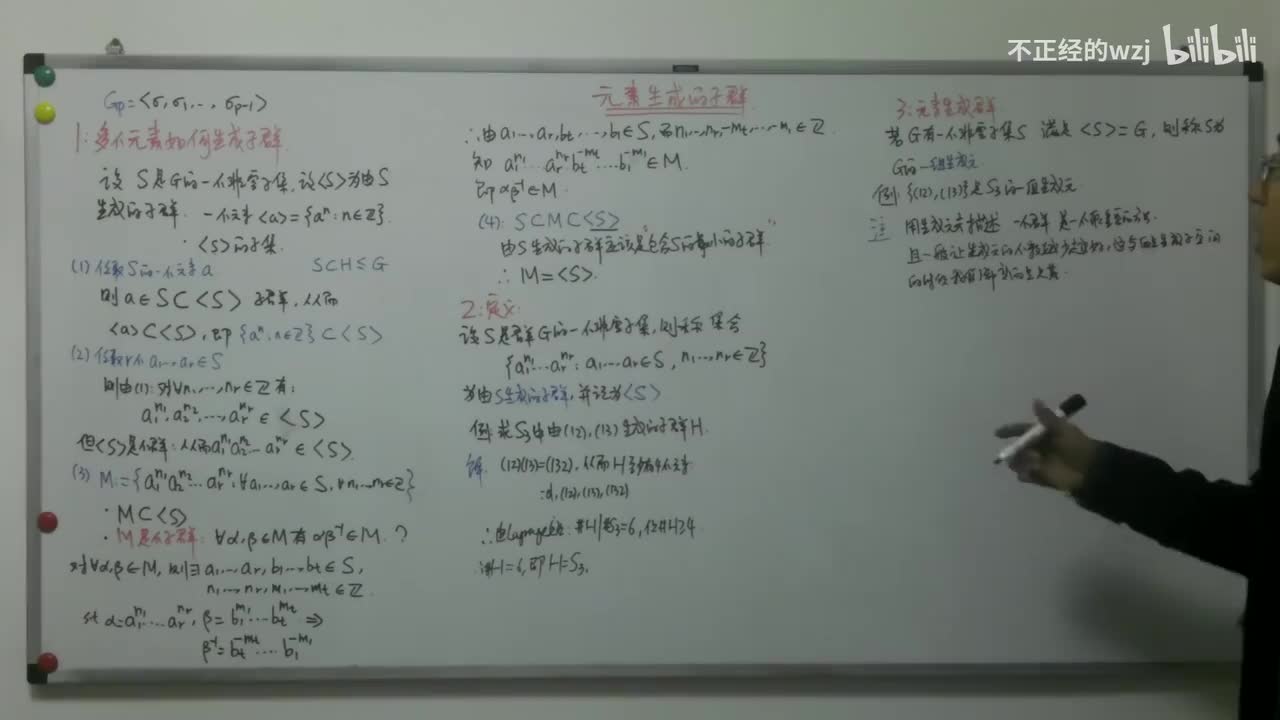 不正经的wzj bilibili
元素生成的子群
G_p=<σ,σ_1,…,σ_{p-1}>
1:多个元素如何生成子群
设 S是G的一个非空子集,设<S>为由S
生成的子群. 一个元素<a>={a^n:n∈Z}.
· <S>的子集.
(1) 任取S的一个元素a S⊂H≤G
则a∈S⊂<S> 子群,从而
<a>⊂<S>,即{a^n:n∈Z}⊂<S>
(2) 任取r个a_1…a_r∈S
则由(1):对∀n_1…,n_r∈Z有:
a_1^{n_1},a_2^{n_2},…,a_r^{n_r}∈<S>
但<S>是个群:从而a_1^{n_1}a_2^{n_2}…a_r^{n_r}∈<S>
(3) M:={a_1^{n_1}a_2^{n_2}…a_r^{n_r}:∀a_1…a_r∈S,∀n_1…n_r∈Z}
· M⊂<S>
· M是个子群: ∀α,β∈M有αβ^{-1}∈M.?
对∀α,β∈M,则∃a_1…a_r,b_1…b_t∈S,
n_1…n_r,m_1…m_t∈Z.
st α=a_1^{n_1}…a_r^{n_r},β=b_1^{m_1}…b_t^{m_t} ⇒
β^{-1}=b_t^{-m_t}…b_1^{-m_1}
∴由a_1…a_r,b_t,…,b_1∈S,而n_1…n_r,-m_t,…,-m_1∈Z
知 a_1^{n_1}…a_r^{n_r}b_t^{-m_t}…b_1^{-m_1}∈M.
即αβ^{-1}∈M.
(4): S⊂M⊂<S>
由S生成的子群应该是"包含S的最小的子群"
∴M=<S>.
2:定义:
设S是群G的一个非空子集,则称 集合
{a_1^{n_1}…a_r^{n_r}:a_1…a_r∈S,n_1…,n_r∈Z}
为由S生成的子群,并记为<S>
例:求S_3中由(12),(13)生成的子群H.
解: (12)(13)=(132),从而H至少有4个元素
:d,(12),(13),(132)
∴由Lagrange定理: #H|#S_3=6,但#H≥4
∴#H=6,即H=S_3.
3:元素生成群
若G有一个非空子集S 满足<S>=G,则称S为
G的一组生成元
例:{(12),(13)}是S_3的一组生成元.
注 用生成元去描述一个群是一个很重要的方法.